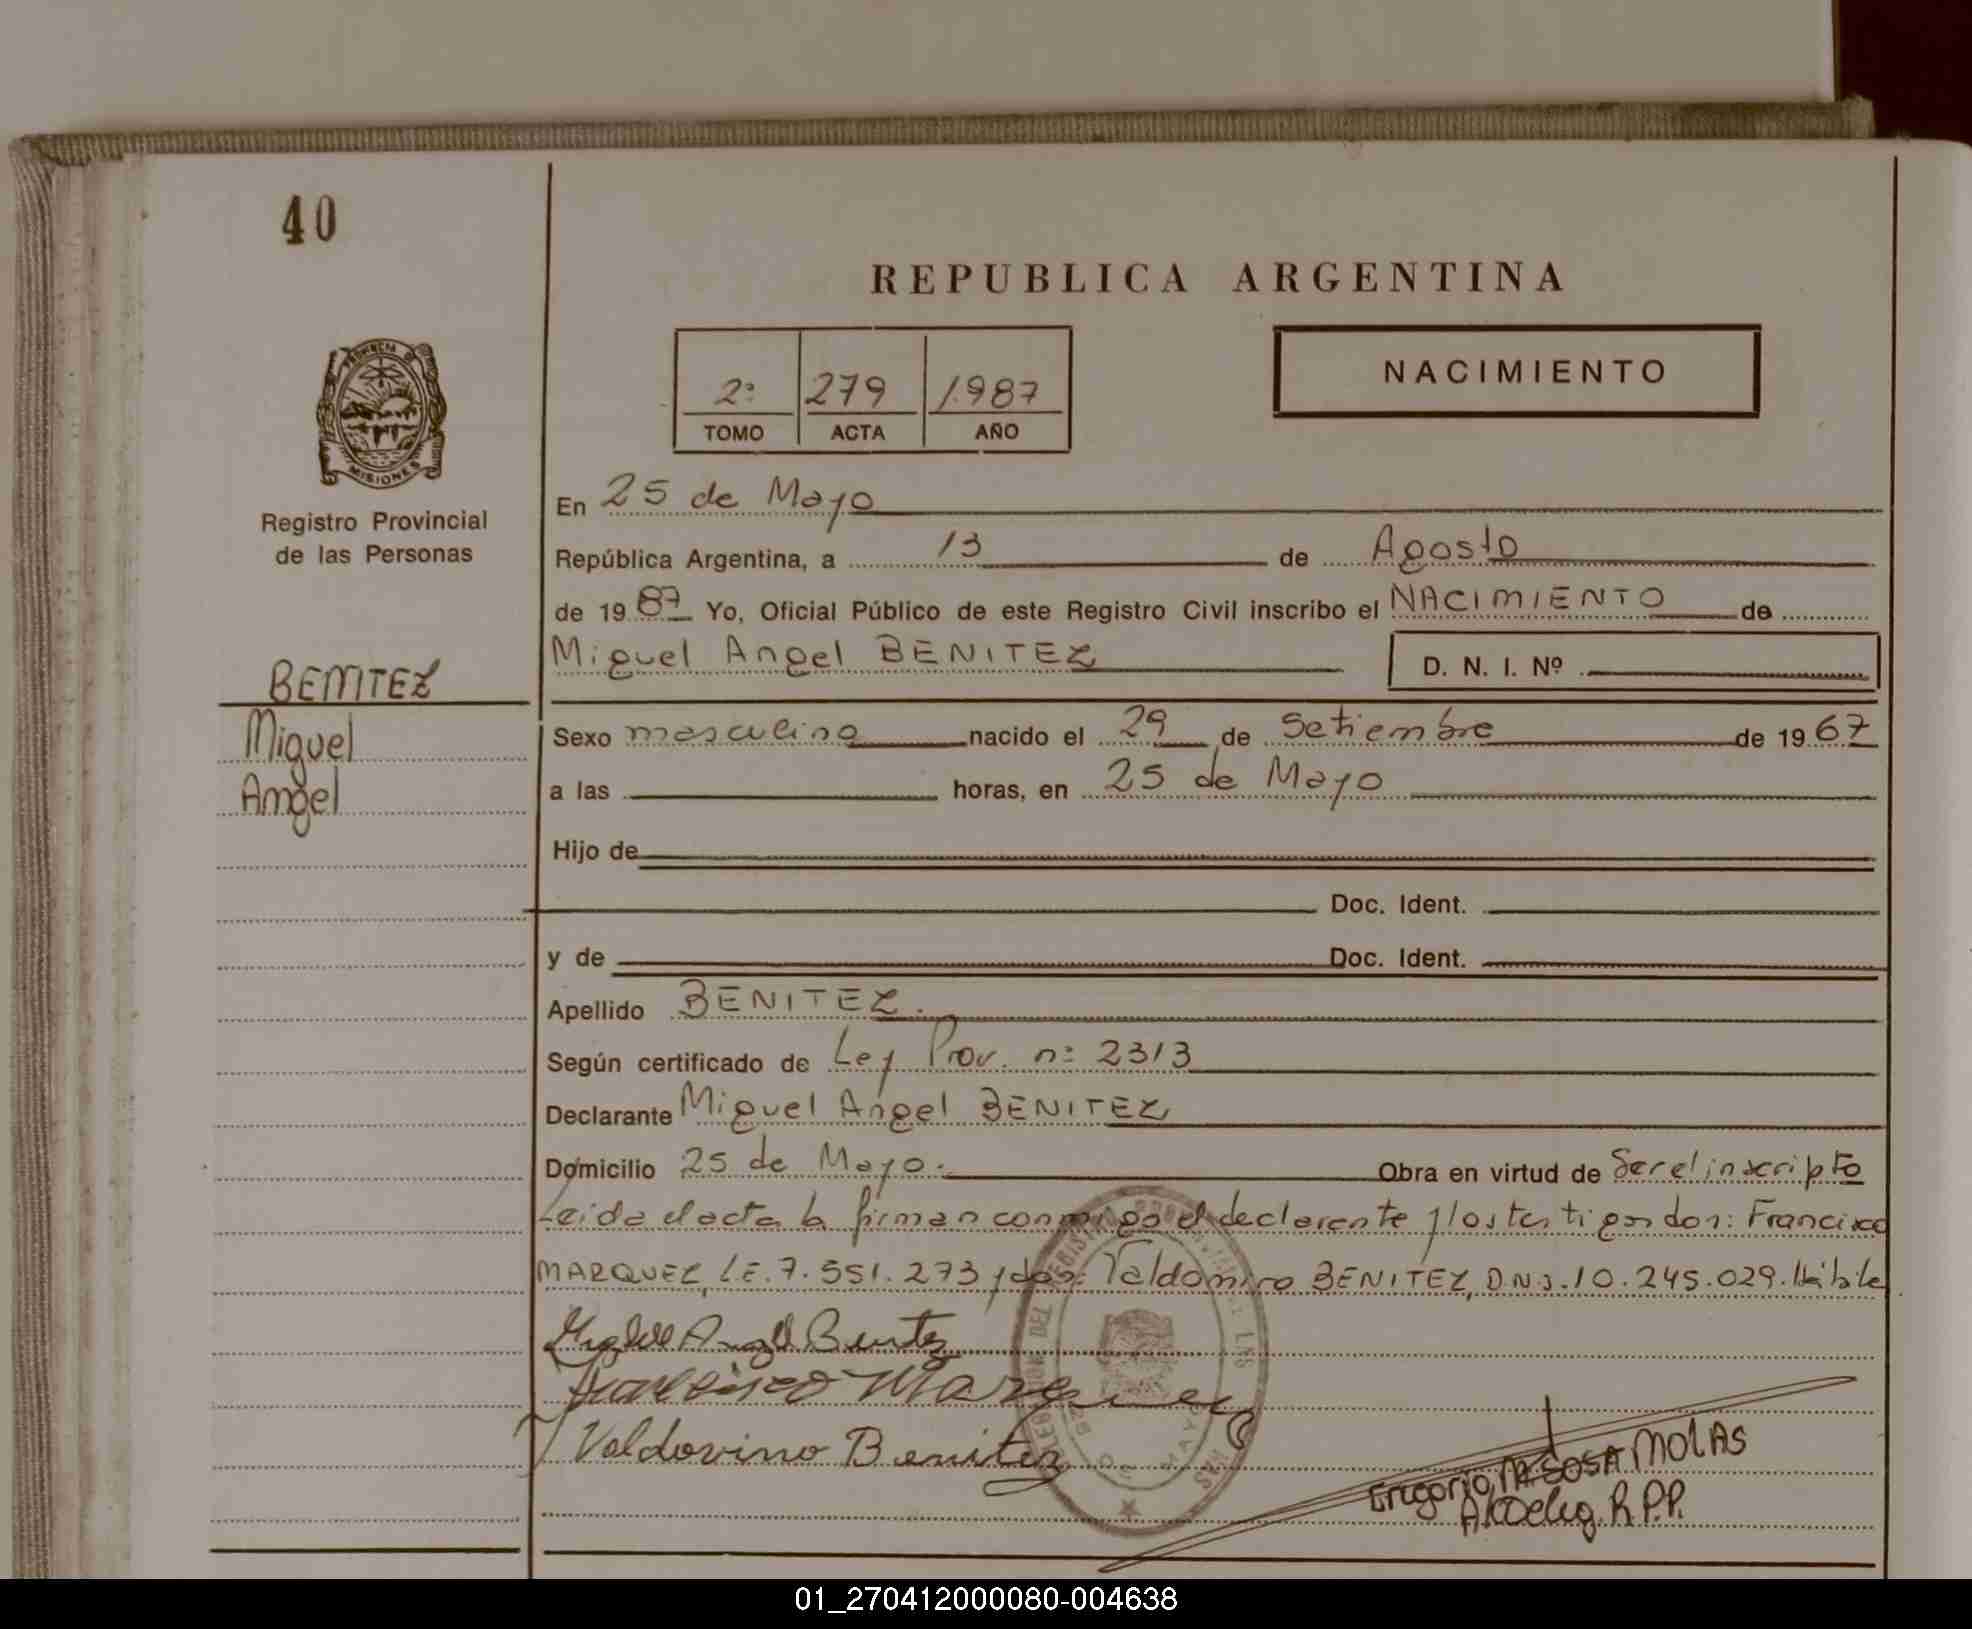 40
REPUBLICA ARGENTINA
PROVINCIA DE
MISIONES
Registro Provincial
de las Personas
2º 279 1987
TOMO ACTA AÑO
NACIMIENTO
En 25 de Mayo
República Argentina, a 13 de Agosto
de 1987 Yo, Oficial Público de este Registro Civil inscribo el NACIMIENTO de
Miguel Angel BENITEZ D. N. I. Nº
BENITEZ
Miguel
Angel
Sexo masculino nacido el 29 de Setiembre de 1967
a las horas, en 25 de Mayo
Hijo de
Doc. Ident.
y de Doc. Ident.
Apellido BENITEZ.
Según certificado de Ley Prov. nº 2313
Declarante Miguel Angel BENITEZ
Domicilio 25 de Mayo. Obra en virtud de Ser el inscripto
Leida el acta la firman conmigo el declarante y los testigos don: Francisco
MARQUEZ, L.E. 7.551.273 y don: Valdomiro BENITEZ, D.N.I. 10.245.029. Hábile
Angel Benitez
Francisco Marquez
Valdovino Benitez
SOSA MOLAS
R.P.P.
01_270412000080-004638